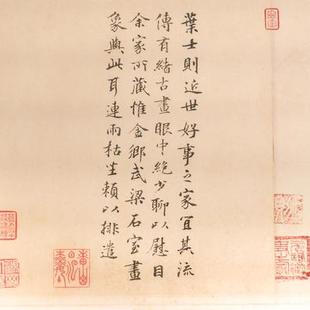 葉士則近世好事之家宜其流
傳有緒古畫眼中絶少聊以慰目
余家所藏惟金鄉武梁石室畫
象與此耳連雨枯坐賴以排遣